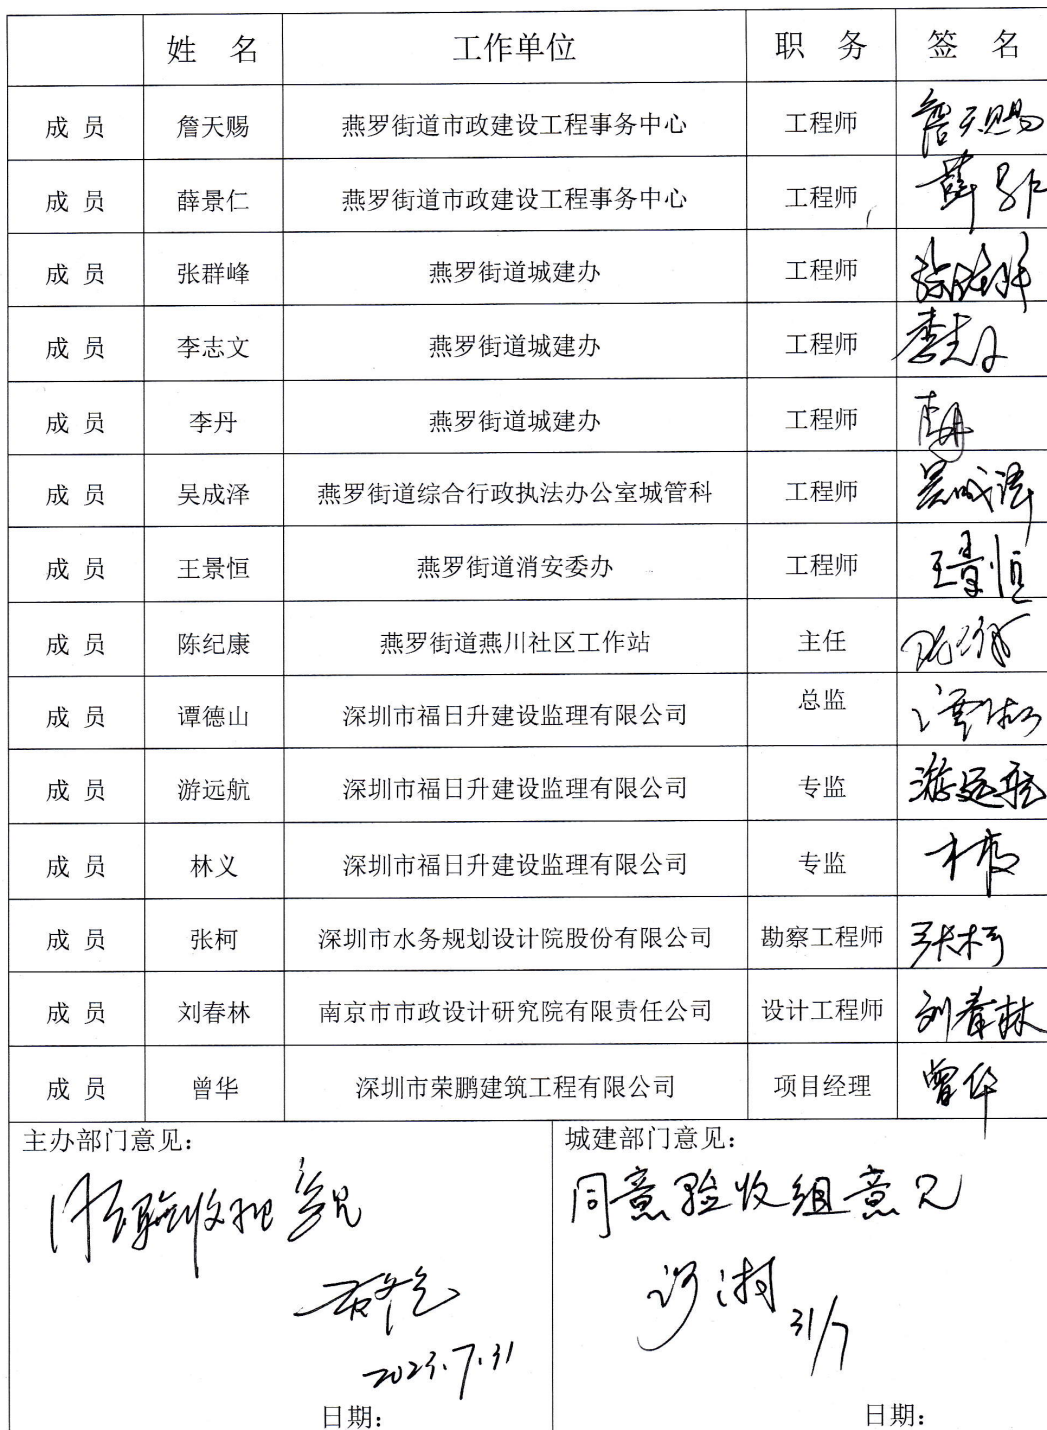 姓 名 工作单位 职 务 签 名
成 员 詹天赐 燕罗街道市政建设工程事务中心 工程师 詹天赐
成 员 薛景仁 燕罗街道市政建设工程事务中心 工程师 薛
成 员 张群峰 燕罗街道城建办 工程师
成 员 李志文 燕罗街道城建办 工程师 李志文
成 员 李丹 燕罗街道城建办 工程师 李丹
成 员 吴成泽 燕罗街道综合行政执法办公室城管科 工程师 吴成泽
成 员 王景恒 燕罗街道消安委办 工程师 王景恒
成 员 陈纪康 燕罗街道燕川社区工作站 主任
成 员 谭德山 深圳市福日升建设监理有限公司 总监
成 员 游远航 深圳市福日升建设监理有限公司 专监 游远航
成 员 林义 深圳市福日升建设监理有限公司 专监
成 员 张柯 深圳市水务规划设计院股份有限公司 勘察工程师 张柯
成 员 刘春林 南京市市政设计研究院有限责任公司 设计工程师 刘春林
成 员 曾华 深圳市荣鹏建筑工程有限公司 项目经理 曾华
主办部门意见：
同意验收组意见
2023.7.31
日期：
城建部门意见：
同意验收组意见
31/7
日期：